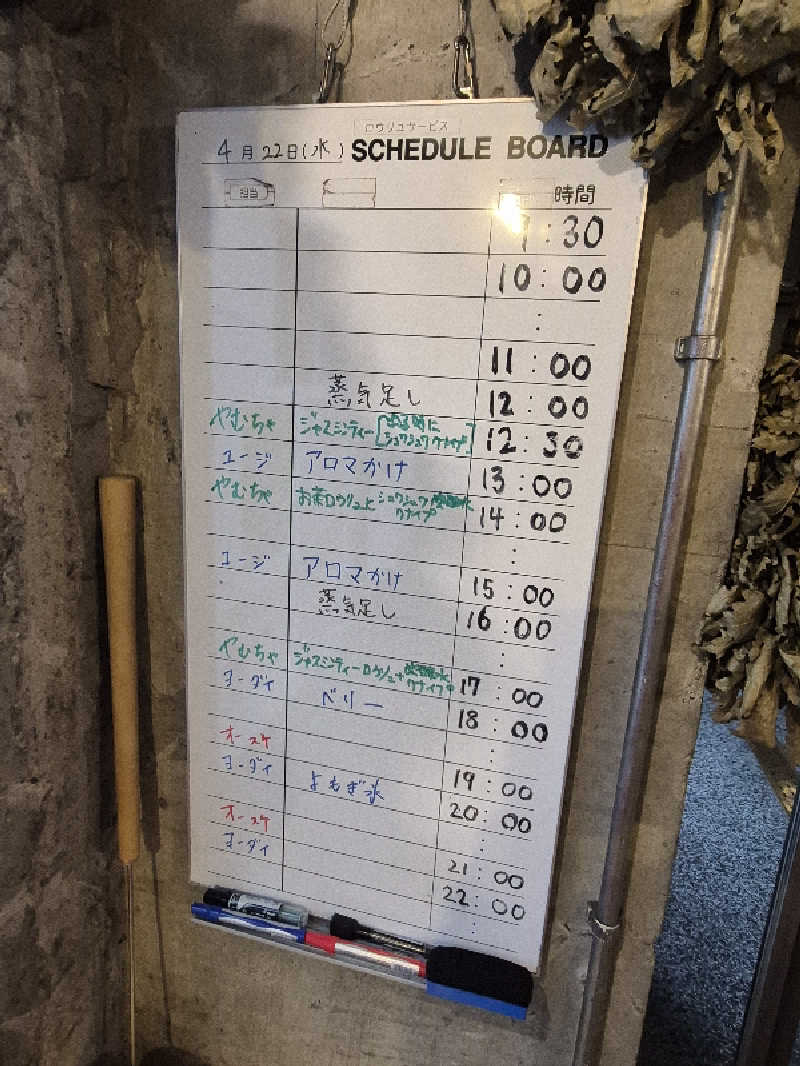 ロウリュサービス
4月22日(水) SCHEDULE BOARD
担当 時間
:30
10:00
:
11:00
蒸気足し 12:00
やむちゃ ジャスミンティー 12:30
ユージ アロマかけ 13:00
やむちゃ お茶ロウリュと シュワシュワ クナイプ 14:00
:
ユージ アロマかけ 15:00
蒸気足し 16:00
:
やむちゃ ジャスミンティーロウリュ クナイプ 17:00
ヨーダイ ベリー 18:00
:
オースケ 19:00
ヨーダイ よもぎ氷 20:00
:
オースケ 21:00
ヨーダイ 22:00
: